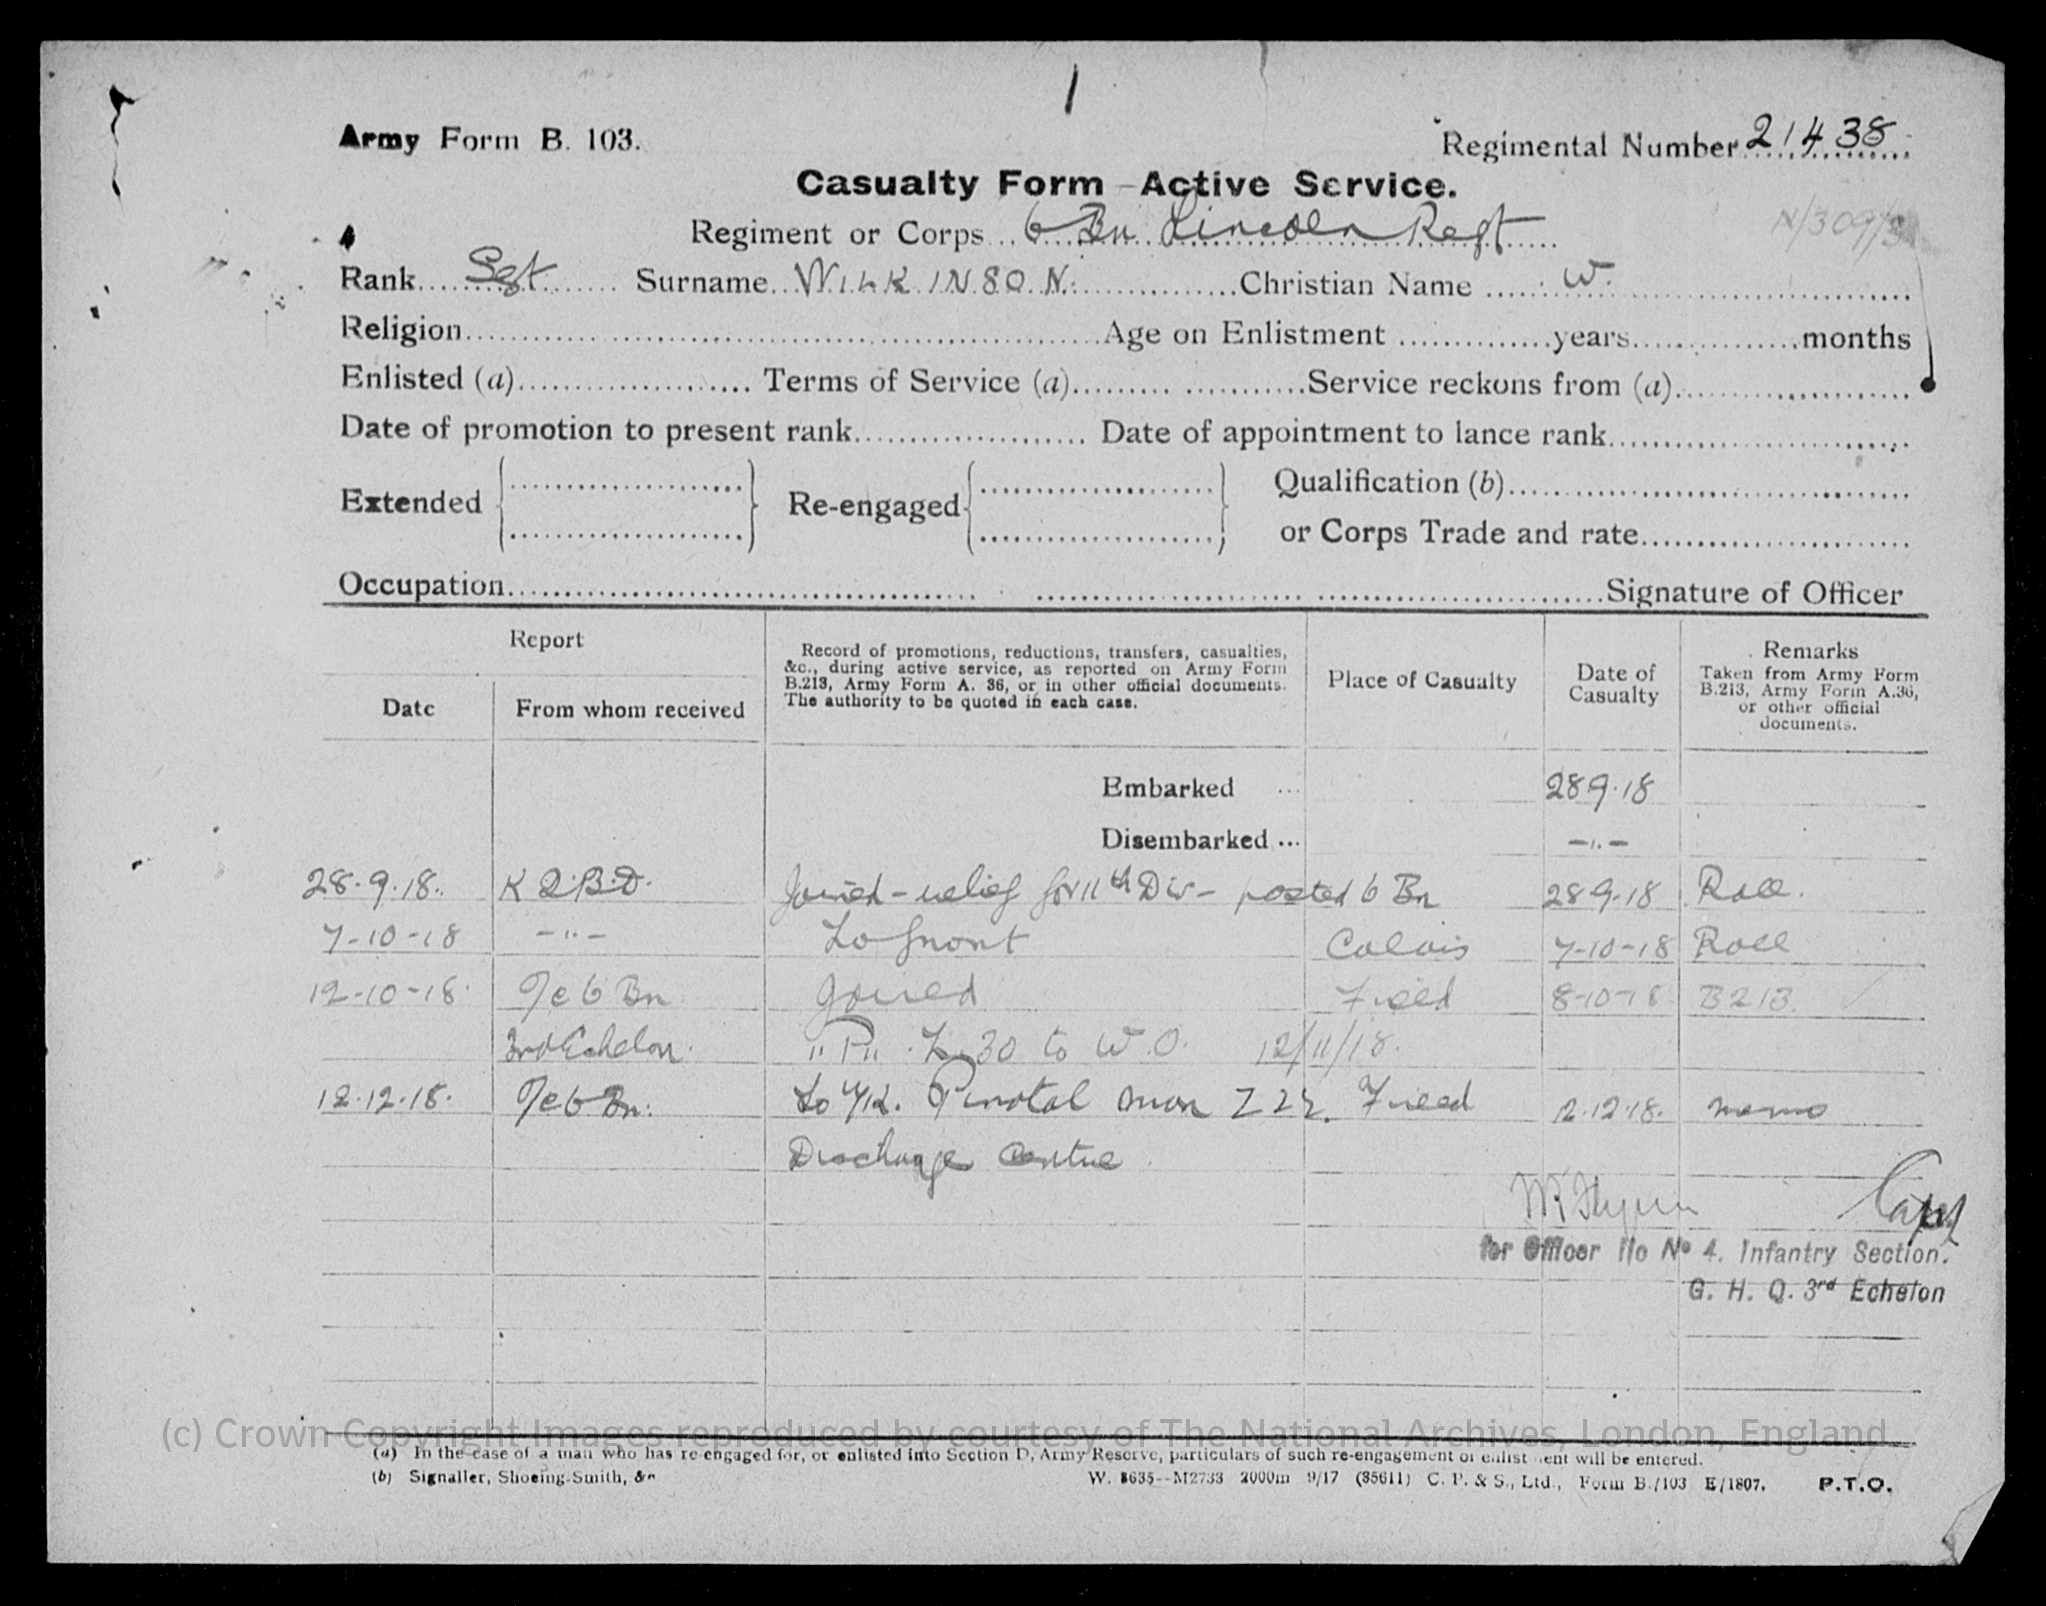 1
Army Form B. 103.
Regimental Number 21438
Casualty Form—Active Service.
Regiment or Corps 6 Bn Lincoln Regt
N/309/3
Rank Sgt Surname WILKINSON. Christian Name W.
Religion Age on Enlistment years months
Enlisted (a) Terms of Service (a) Service reckons from (a)
Date of promotion to present rank Date of appointment to lance rank
Extended Re-engaged Qualification (b)
or Corps Trade and rate
Occupation Signature of Officer
Report
Date From whom received
Record of promotions, reductions, transfers, casualties,
&c., during active service, as reported on Army Form
B.213, Army Form A. 36, or in other official documents.
The authority to be quoted in each case.
Place of Casualty
Date of
Casualty
Remarks
Taken from Army Form
B.213, Army Form A.36,
or other official
documents.
Embarked ... 28 9.18
Disembarked ... —"—
28.9.18. K I.B.D. Joined - relief for 11th Div - posted 6 Bn 28 9.18 Roll.
7-10-18 —"— To front Calais 7-10-18 Roll
12-10-18. O/c 6 Bn Joined Field 8-10-18 B213.
3rd Echelon. 30 to W.O. 12/11/18.
12.12.18. O/c 6 Bn: To UK. Pivotal man Z 22. Field 12.12.18. memo
Discharge Centre
Capt
for Officer i/c No 4. Infantry Section.
G. H. Q. 3rd Echelon
(c) Crown Copyright Images reproduced by courtesy of The National Archives, London, England
(a) In the case of a man who has re-engaged for, or enlisted into Section D, Army Reserve, particulars of such re-engagement or enlistment will be entered.
(b) Signaller, Shoeing-Smith, &c
W. 8635--M2733 2000m 9/17 (35611) C. P. & S., Ltd., Form B./103 E/1807. P.T.O.